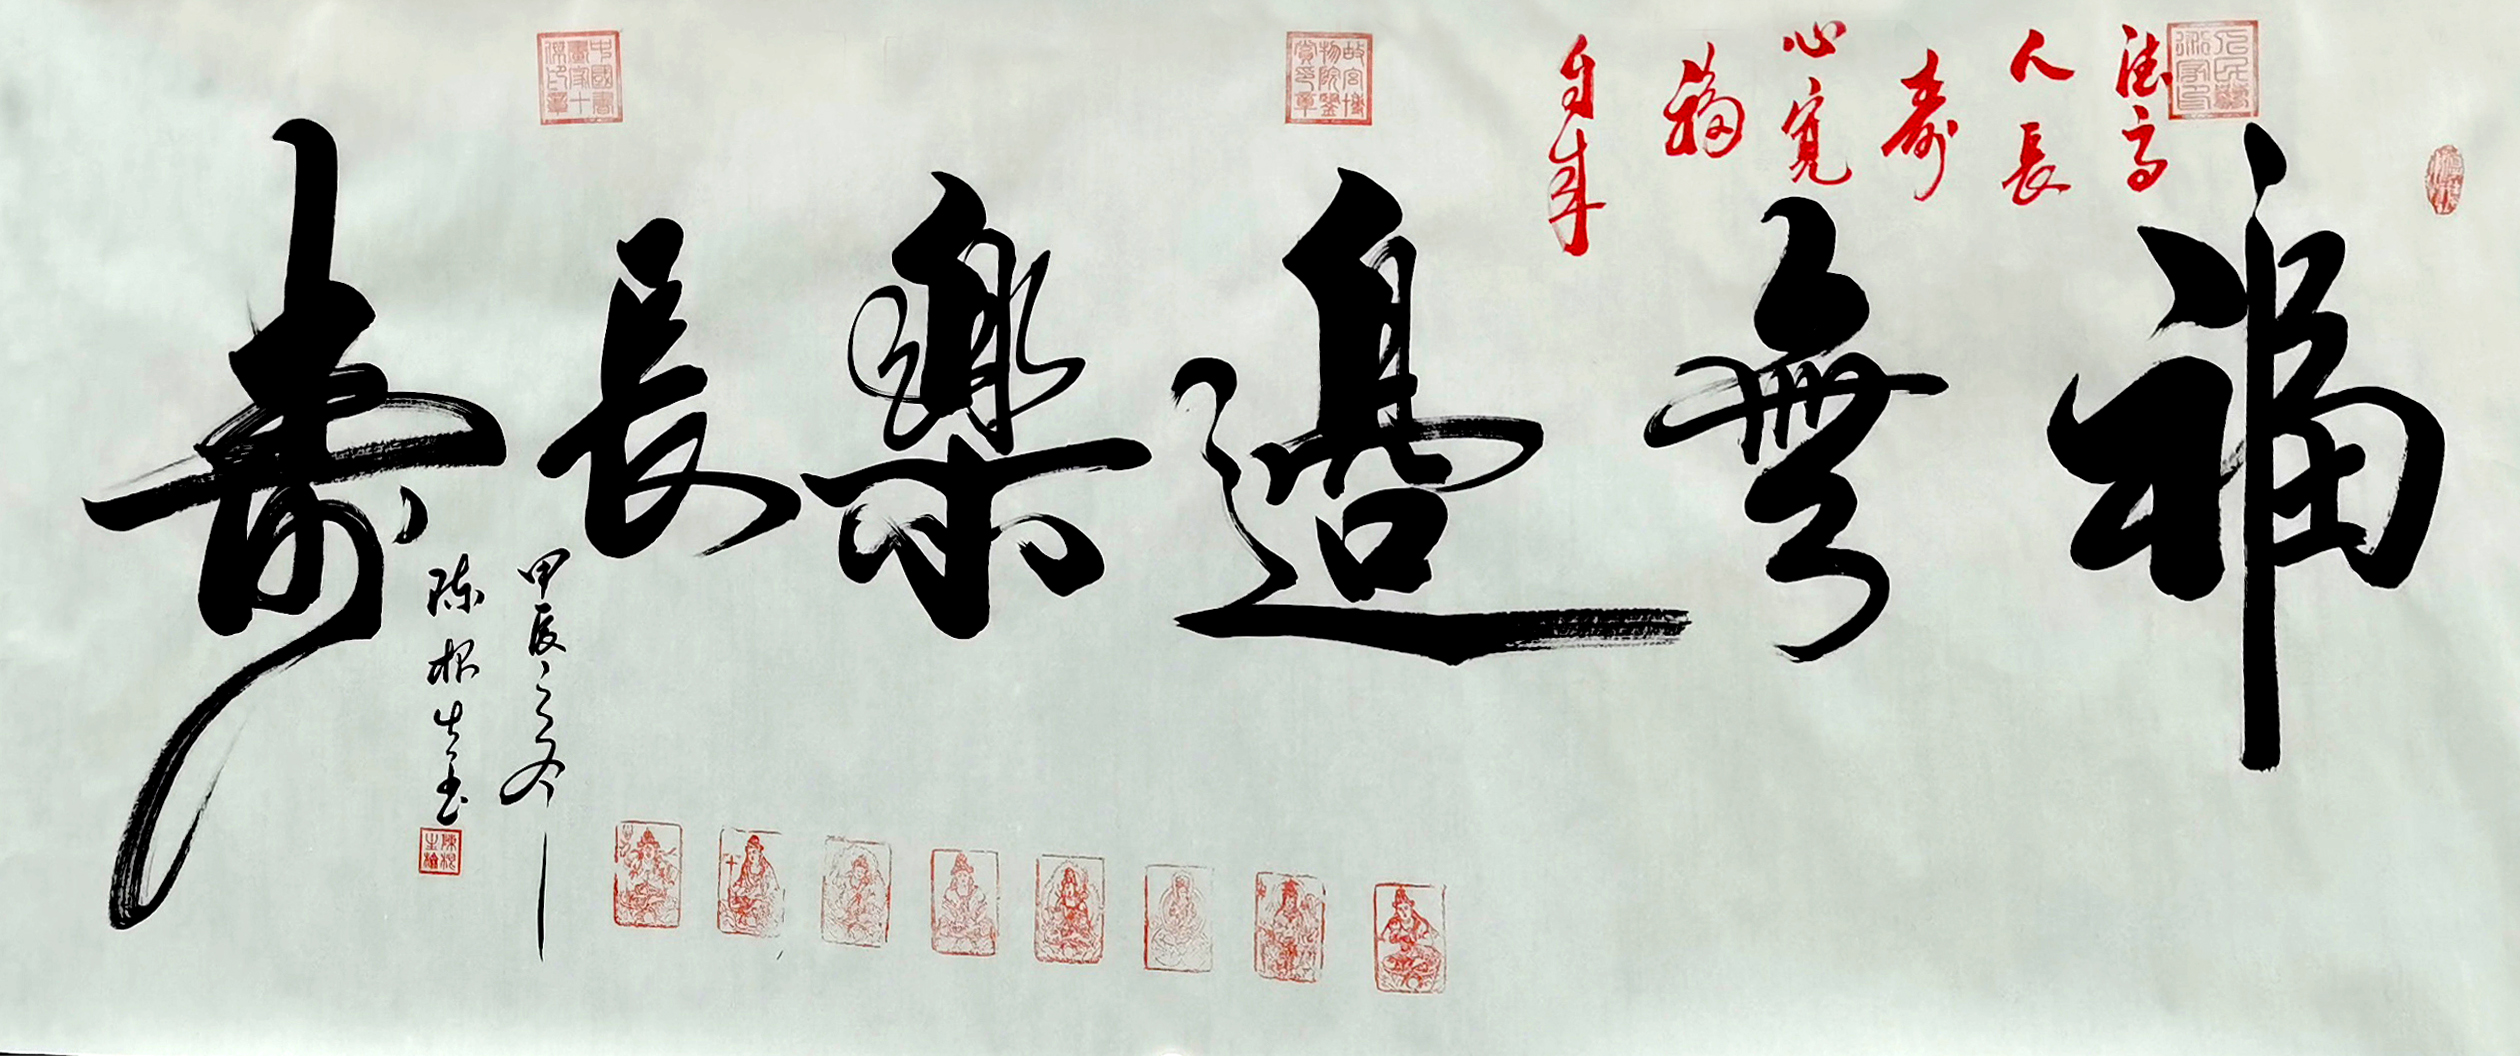 福無邊樂長壽
德高
人長
壽
心寬
福
自來
甲辰之冬
陈根生書
故宮博物院鑒賞印章
中國書畫家十傑印章
陳根生檜